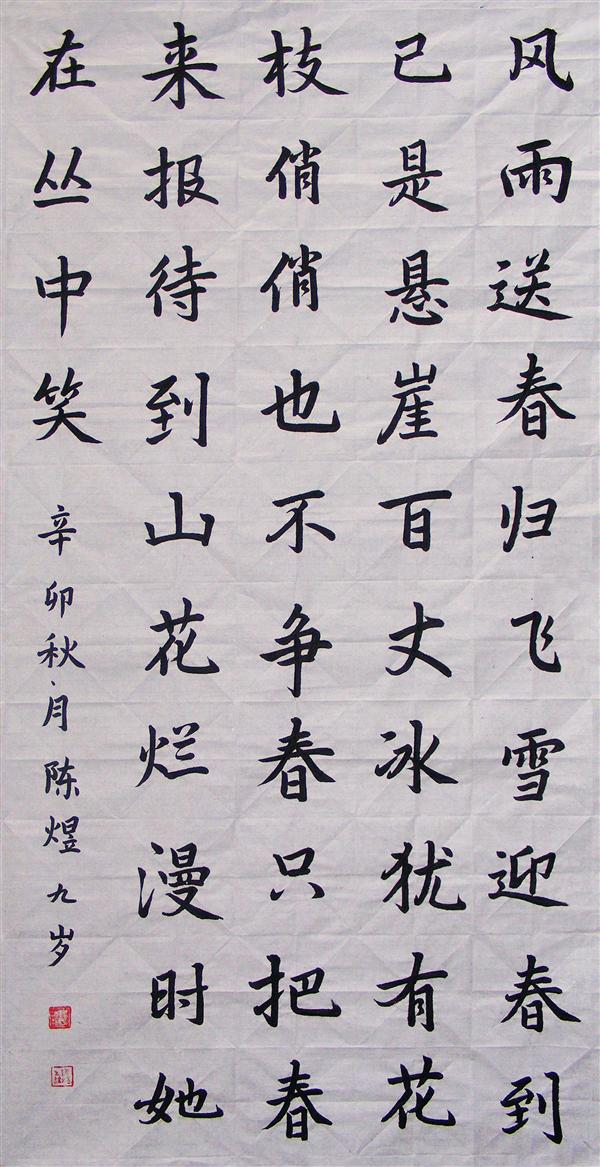 风雨送春归飞雪迎春到
已是悬崖百丈冰犹有花
枝俏俏也不争春只把春
来报待到山花烂漫时她
在丛中笑
辛卯秋月陈煜九岁